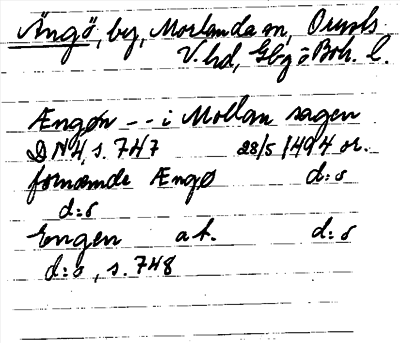 Ängö, by, Morlanda sn, Orusts
V. hd, Gbg o Boh. l.
Ængøn - - i Mollan sagen
DN 4, s. 747 28/5 1494 or.
fornæmde Ængø d:o
d:o
Engen a.f. d:o
d:o, s. 748